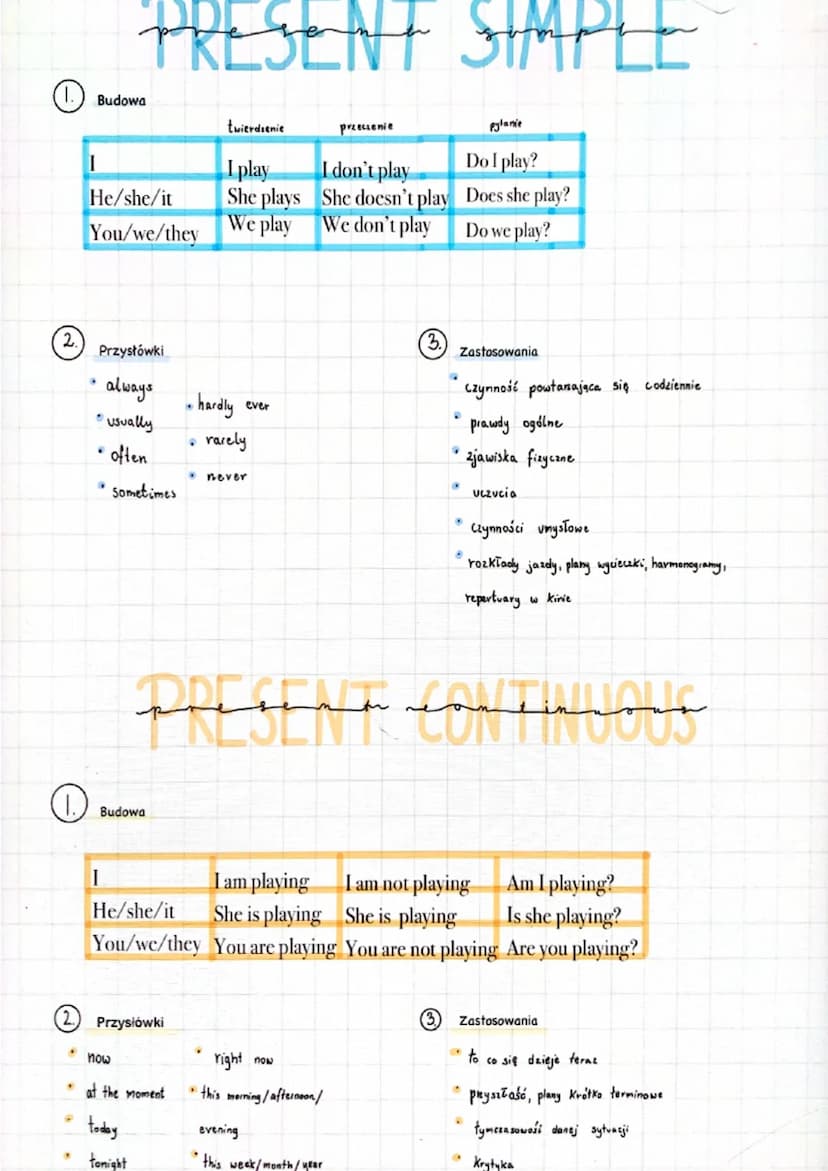 PRESENT SIMPLE
present simple
1. Budowa
twierdzenie przeczenie pytanie
I I play I don't play Do I play?
He/she/it She plays She doesn't play Does she play?
You/we/they We play We don't play Do we play?
2. Przysłówki
• always
• usually
• often
• sometimes
• hardly ever
• rarely
• never
3. Zastosowania
• czynność powtarzająca się codziennie
• prawdy ogólne
• zjawiska fizyczne
• uczucia
• czynności umysłowe
• rozkłady jazdy, plany wycieczki, harmonogramy,
repertuary w kinie
PRESENT CONTINUOUS
present continuous
1. Budowa
I I am playing I am not playing Am I playing?
He/she/it She is playing She is playing Is she playing?
You/we/they You are playing You are not playing Are you playing?
2. Przysłówki
• now
• at the moment
• today
• tonight
• right now
• this morning/afternoon/
evening
• this week/month/year
3. Zastosowania
• to co się dzieje teraz
• przyszłość, plany krótko terminowe
• tymczasowość danej sytuacji
• krytyka